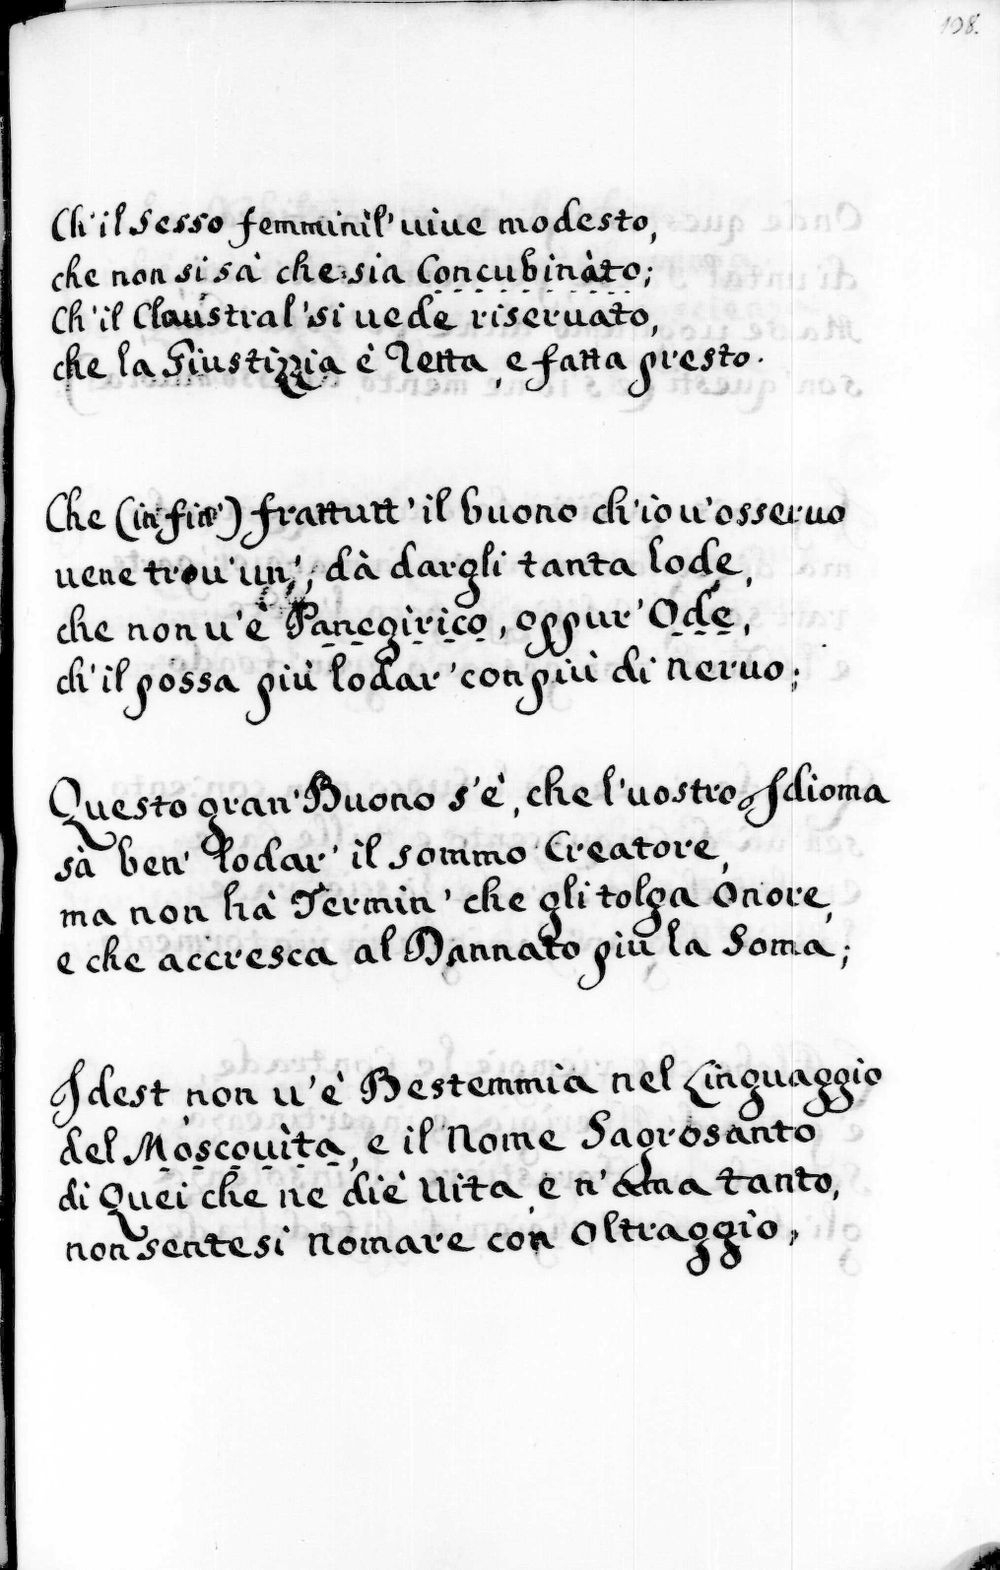 198.
Ch'il Sesso femminil' uiue modesto,
che non si sà che sia Concubinàto;
Ch'il Claustral' si uede riseruato,
che la Giustizzia è Retta, e fatta presto.
Che (in fin') frattutt' il buono ch'io u'osseruo
uene trou' un', dà dargli tanta lode,
che non u'è Panegirico, oppur' Ode,
ch'il possa più lodar' con più di neruo;
Questo gran' Buono s'è, che l'uostro Idioma
sà ben' lodar' il sommo Creatore,
ma non hà Termin' che gli tolga Onore,
e che accresca al Dannato più la Soma;
Idest non u'è Bestemmia nel Linguaggio
del Moscouìta, e il Nome Sagrosanto
di Quei che ne diè Uita e n'ama tanto,
non sentesi nomare con Oltraggio,